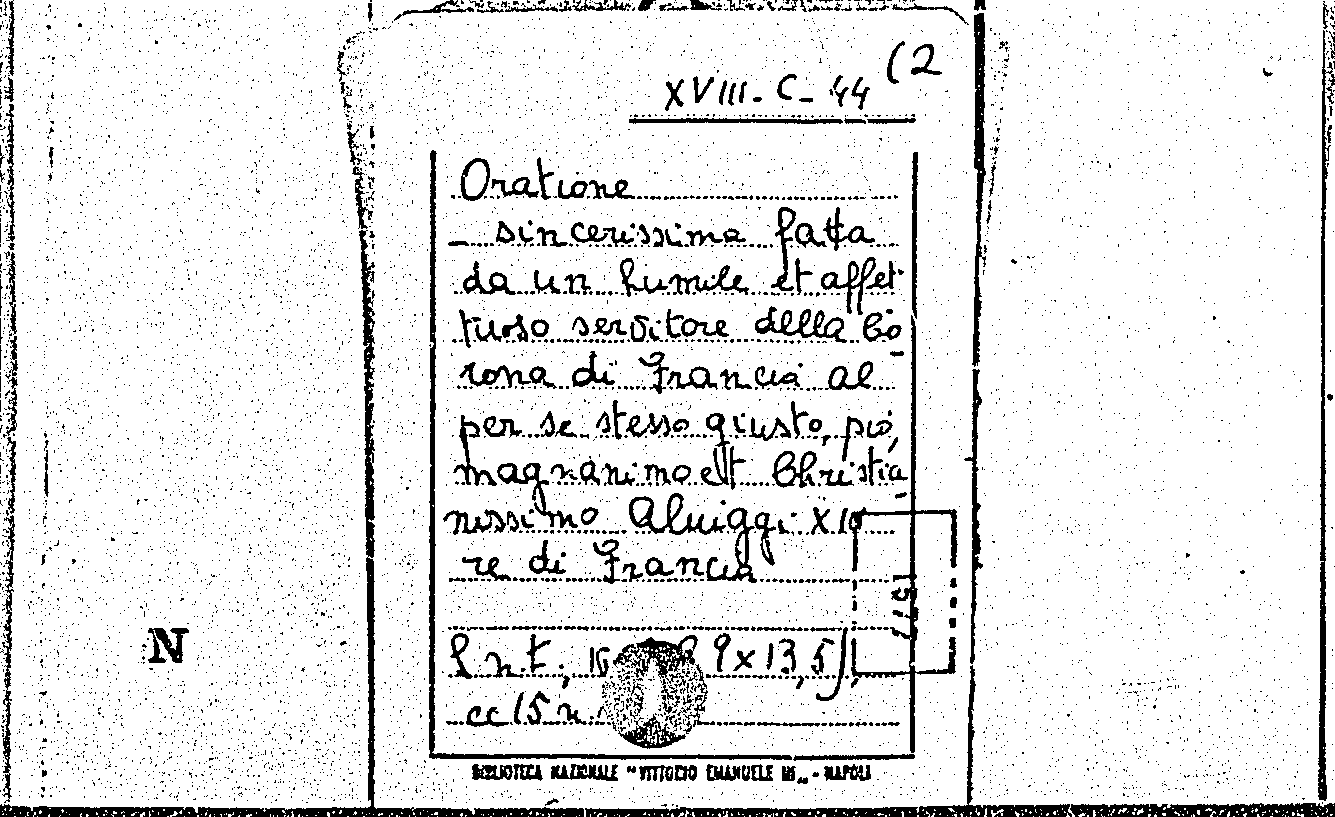 XVIII-C-44 (2
Oratione
_ sincerissima fatta
da un humile et affet
tuoso servitore della Co
rona di Francia al
per se stesso giusto, pio,
magnanimo et Christia
nissimo Aluiggi
re di Francia
N
9x13,5),
cc 15 n.
BIBLIOTECA NAZIONALE "VITTORIO EMANUELE III" - NAPOLI